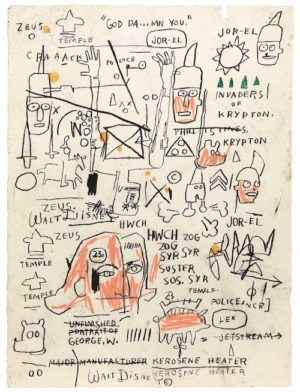 ZEUS
"GOD DA...MN YOU."
JOR-EL
TEMPLE
JOR-EL
CRAAACK
INVADERS
OF
KRYPTON.
PHILISTINES.
KRYPTON
ZEUS.
WALT DISNE
HWCH
JOR-EL
ZEUS
HWCH ZOG
ZOG
SYR SYR
SUSTER
SOS. SYR
FEMALE.
TEMPLE
23
TEMPLE
POLICE
LEX
UNFINISHED
PORTRAIT OF
GEORGE.W.
JETSTREAM→
MAJOR MANUFACTURER KEROSENE HEATER
WALT DISNE KEROSENE HEATER